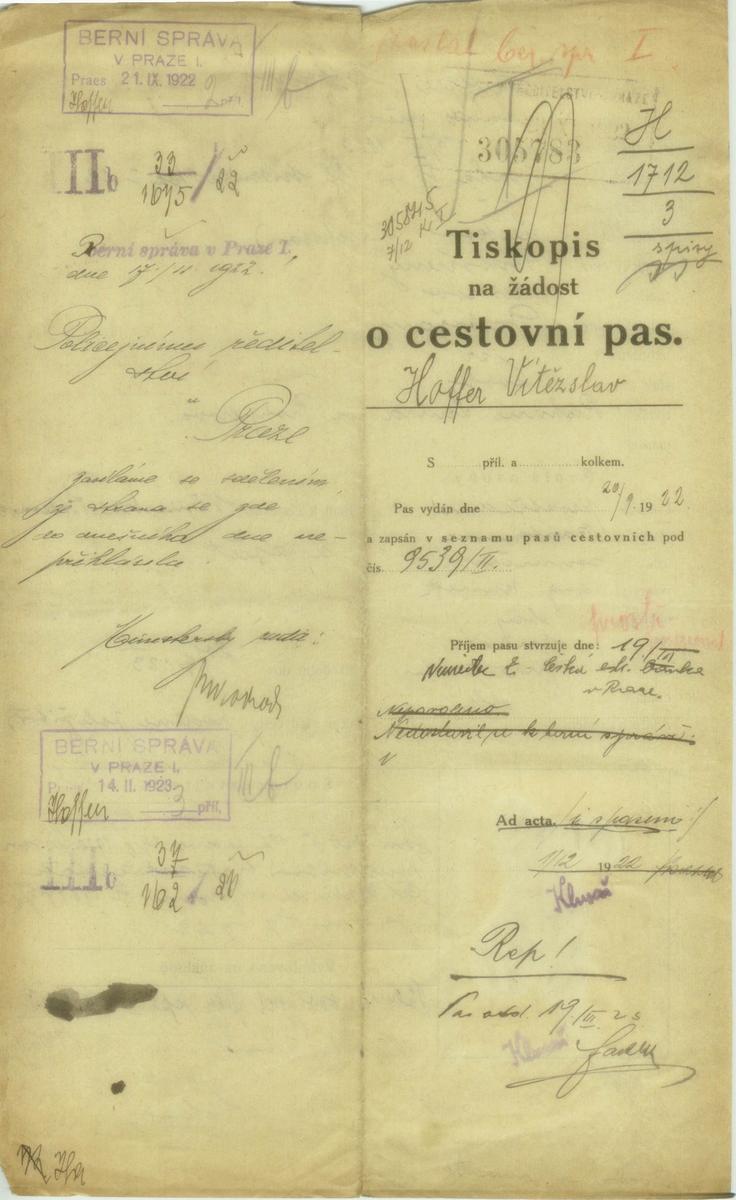 BERNÍ SPRÁVA
V PRAZE I.
Praes 21. IX. 1922
Hoffer 2 příl.
III b
IIb 33/1675/22
Berní správa v Praze I.
dne 17./11 1922.
Policejnímu ředitel-
ství
v Praze
zasíláme se sdělením,
že strana se zde
do dnešního dne ne-
přihlásila.
Ministerský rada:
BERNÍ SPRÁVA
V PRAZE I.
14. II. 1923
Hoffer 3 příl.
III b
IIIb 37/162/23
ber. spr. I.
305783
H
1712
3
spisy
305845
7/12
Tiskopis
na žádost
o cestovní pas.
Hoffer Vítězslav
S příl. a kolkem.
Pas vydán dne 20/9. 1922
a zapsán v seznamu pasů cestovních pod
čís. 9539/II.
Příjem pasu stvrzuje dne: 19/III
v Praze.
Nedostavil se k berní správě
v
Ad acta. /i s pasem:/
1/12 1922
Rep!
Pas odd. 19/III 23